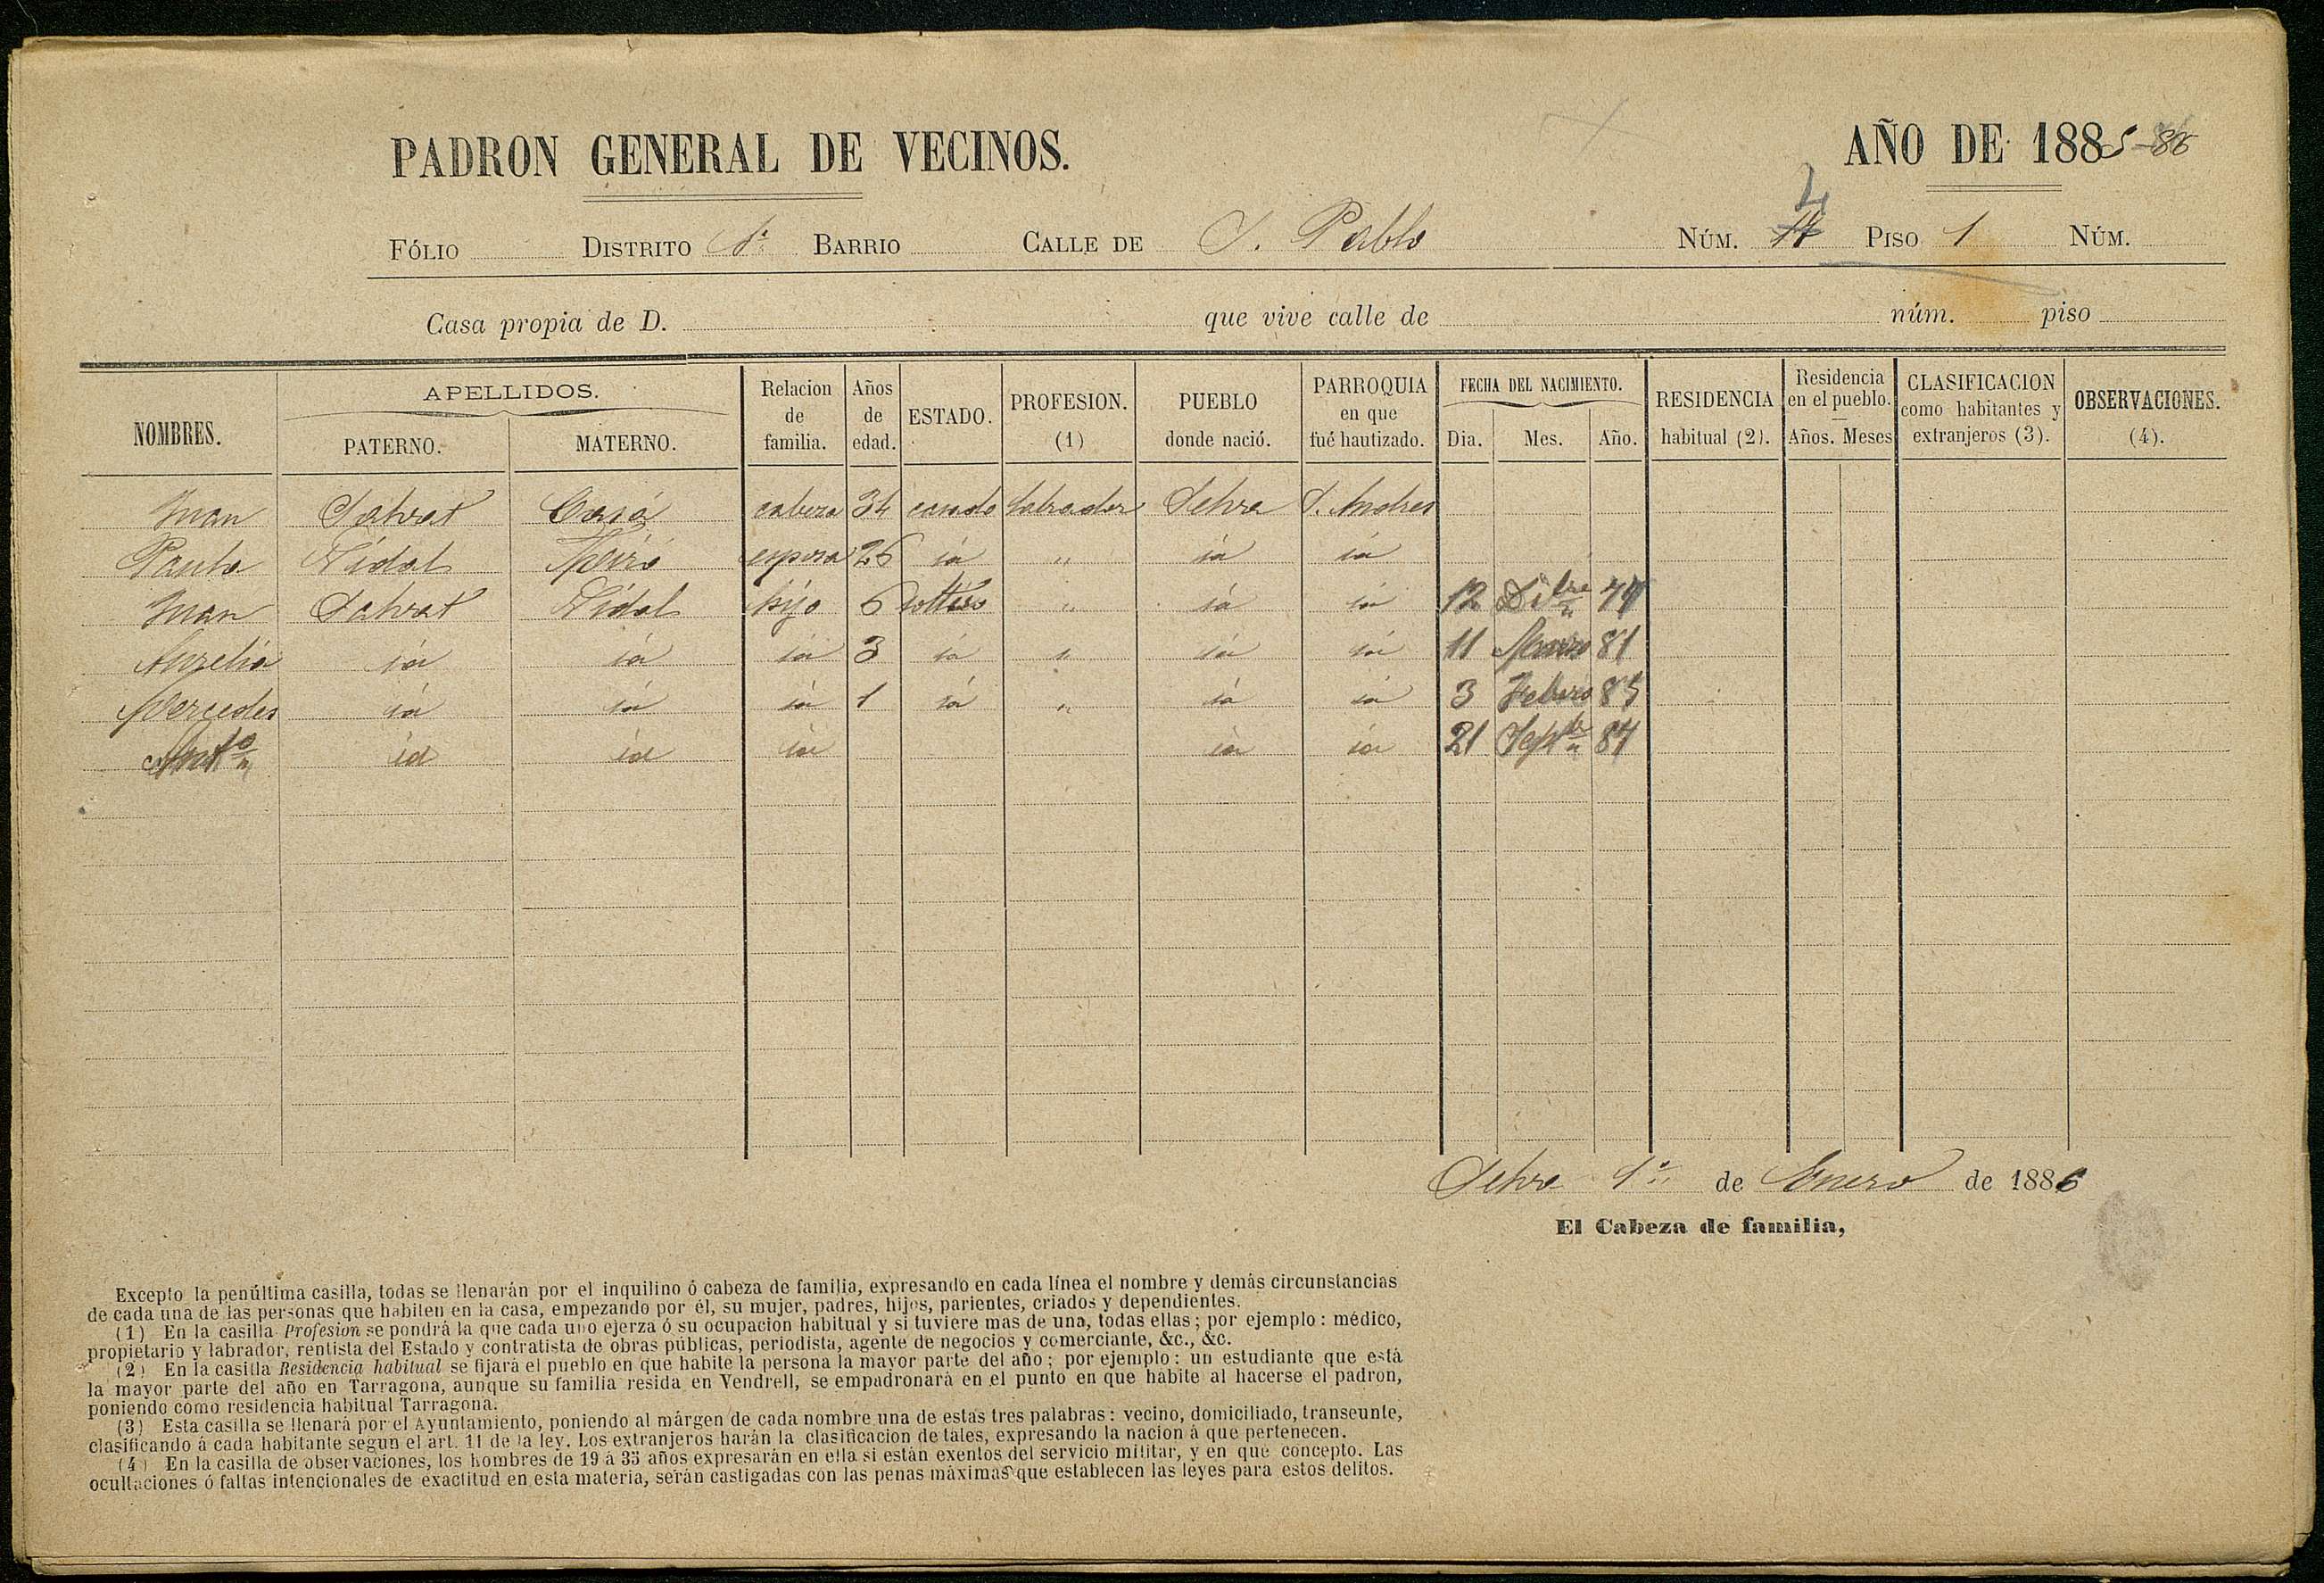 PADRON GENERAL DE VECINOS. AÑO DE 1885-86
FÓLIO DISTRITO 1º BARRIO CALLE DE S. Pablo NÚM. 4 PISO 1 NÚM.
Casa propia de D. que vive calle de núm. piso
NOMBRES. APELLIDOS. PATERNO. MATERNO. Relacion de familia. Años de edad. ESTADO. PROFESION. (1) PUEBLO donde nació. PARROQUIA en que fué bautizado. FECHA DEL NACIMIENTO. Dia. Mes. Año. RESIDENCIA habitual (2). Residencia en el pueblo. Años. Meses CLASIFICACION como habitantes y extranjeros (3). OBSERVACIONES. (4).
Juan Salvat cabeza 34 casado labrador Selva S. Andres
Paula Vidal esposa 26 id " id id
Juan Salvat Vidal hijo 6 soltero " id id 12 Dibre
Aurelia id id id 3 id " id id 11 Marzo 81
Mercedes id id id 1 id " id id 3 Febero 85
Anto id id id id id 21 Sepbre 84
Selva 1º de Enero de 1886
El Cabeza de familia,
Excepto la penúltima casilla, todas se llenarán por el inquilino ó cabeza de familia, expresando en cada línea el nombre y demás circunstancias
de cada una de las personas que habiten en la casa, empezando por él, su mujer, padres, hijos, parientes, criados y dependientes.
(1) En la casilla Profesion se pondrá la que cada uno ejerza ó su ocupacion habitual y si tuviere mas de una, todas ellas; por ejemplo: médico,
propietario y labrador, rentista del Estado y contratista de obras públicas, periodista, agente de negocios y comerciante, &c., &c.
(2) En la casilla Residencia habitual se fijará el pueblo en que habite la persona la mayor parte del año; por ejemplo: un estudiante que está
la mayor parte del año en Tarragona, aunque su familia resida en Vendrell, se empadronará en el punto en que habite al hacerse el padron,
poniendo como residencia habitual Tarragona.
(3) Esta casilla se llenará por el Ayuntamiento, poniendo al márgen de cada nombre una de estas tres palabras: vecino, domiciliado, transeunte,
clasificando á cada habitante segun el art. 11 de la ley. Los extranjeros harán la clasificacion de tales, expresando la nacion á que pertenecen.
(4) En la casilla de observaciones, los hombres de 19 á 35 años expresarán en ella si están exentos del servicio militar, y en qué concepto. Las
ocultaciones ó faltas intencionales de exactitud en esta materia, serán castigadas con las penas máximas que establecen las leyes para estos delitos.